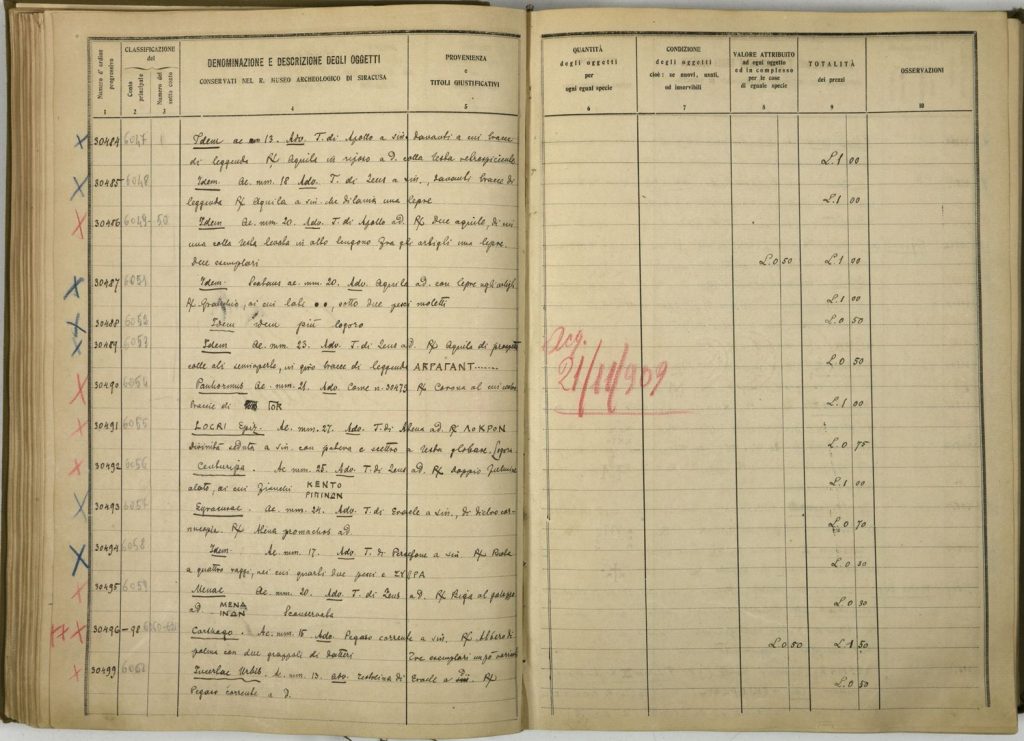 Numero d'ordine progressivo
CLASSIFICAZIONE del
Conto principale
Numero del sotto conto
DENOMINAZIONE E DESCRIZIONE DEGLI OGGETTI
CONSERVATI NEL R. MUSEO ARCHEOLOGICO DI SIRACUSA
PROVENIENZA
e
TITOLI GIUSTIFICATIVI
QUANTITÀ
degli oggetti
per
ogni egual specie
CONDIZIONE
degli oggetti
cioè: se nuovi, usati,
od inservibili
VALORE ATTRIBUITO
ad ogni oggetto
ed in complesso
per le cose
di eguale specie
TOTALITÀ
dei prezzi
OSSERVAZIONI
1 2 3 4 5 6 7 8 9 10
30484 6047 Idem ae mm 13. Adv. T. di Apollo a sin. davanti a cui tracce
di leggenda ℞ Aquila in riposo a D. colla testa retrospiciente L. 1 00
30485 6048 Idem Ae. mm. 18 Adv. T. di Zeus a sin., davanti tracce di
leggenda ℞ Aquila a sin. che dilania una lepre L. 1 00
30486 6049-50 Idem Ae. mm. 20. Adv. T. di Apollo a d. ℞ due aquile, di cui
una colla testa levata in alto tengono fra gli artigli una lepre.
Due esemplari L. 0 50 L. 1 00
30487 6051 Idem ae. mm. 20. Adv. Aquila a d. con lepre agli artigli
℞ Granchio, ai cui lati •• , sotto due pesci L. 1 00
30488 6052 Idem idem più logoro L. 0 50
30489 6053 Idem Ae. mm. 23. Adv. T. di Zeus a D. ℞ Aquila di prospetto
colle ali semiaperte, in giro tracce di leggenda ΑΚΡΑΓΑΝΤ...... L. 0 50
30490 6054 Panhormus Ae. mm. 21. Adv. Come n. 30479 ℞ Corona al cui centro
tracce di L. 1 00
30491 6055 LOCRI Epiz. Ae. mm. 27. Adv. T. di Athena a d. ℞ ΛΟΚΡΩΝ
divinità seduta a sin. con patera e scettro a testa globare. Logora L. 0 75
30492 6056 Centuripa. Ae mm. 25. Adv. T. di Zeus a D. ℞ doppio fulmine
alato, ai cui fianchi ΚΕΝΤΟ L. 1 00
ΡΙΠΙΝΩΝ
30493 6057 Syracusae. Ae. mm. 24. Adv. T. di Eracle a sin., di dietro cor-
nucopia. ℞ Athena promachos a d. L. 0 70
30494 6058 Idem. Ae. mm. 17. Adv. T. di Persefone a sin. ℞ Ruota
a quattro raggi, nei cui quarti due pesci e ΣΥΡΑ
30495 6059 Menae Ae. mm. 20. Adv. T. di Zeus a D. ℞ Biga al galoppo
a D. ΜΕΝΑ L. 0 30
ΙΝΩΝ
30496 - 98 Carthago. Ae. mm. 15 Adv. Pegaso corrente a sin. ℞ Albero di
palma con due grappoli di datteri Tre esemplari L. 0 50 L. 1 50
30499 Incertae Urbis. Ae. mm. 13. adv. testolina di Eracle a ℞
Pegaso corrente a D. L. 0 50
Acq.
21/11/909